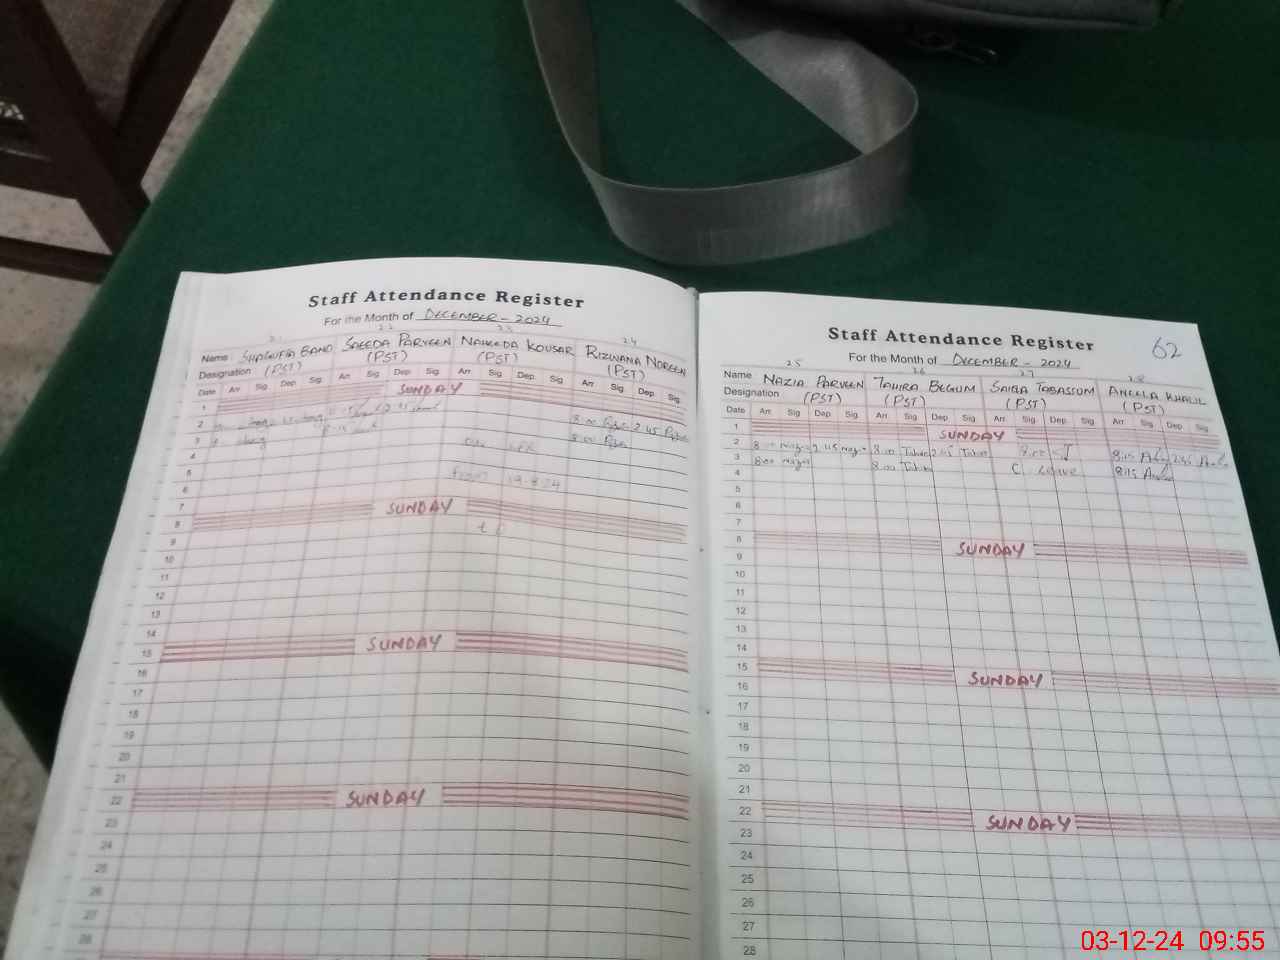 Staff Attendance Register
For the Month of DECEMBER - 2024
21 22 23 24
Name SHAGUFTA BANO SAEEDA PARVEEN NAHEEDA KOUSAR RIZWANA NOREEN
Designation (PST) (PST) (PST) (PST)
Date Arr Sig Dep Sig Arr Sig Dep Sig Arr Sig Dep Sig Arr Sig Dep Sig
1 SUNDAY
2 8.00 2.45
3 8.00
4
5
6 19.8.24
7
8 SUNDAY
9
10
11
12
13
14
15 SUNDAY
16
17
18
19
20
21
22 SUNDAY
23
24
25
26
27
28
62
Staff Attendance Register
For the Month of DECEMBER - 2024
25 26 27 28
Name NAZIA PARVEEN TAHIRA BEGUM SAIRA TABASSUM ANEELA KHALIL
Designation (PST) (PST) (PST) (PST)
Date Arr Sig Dep Sig Arr Sig Dep Sig Arr Sig Dep Sig Arr Sig Dep Sig
1 SUNDAY
2 8.00 2.45 8.00 2.45 8.00 8.15 2.45
3 8.00 8.00 C Leave 8.15
4
5
6
7
8 SUNDAY
9
10
11
12
13
14
15 SUNDAY
16
17
18
19
20
21
22 SUNDAY
23
24
25
26
27
28
03-12-24 09:55